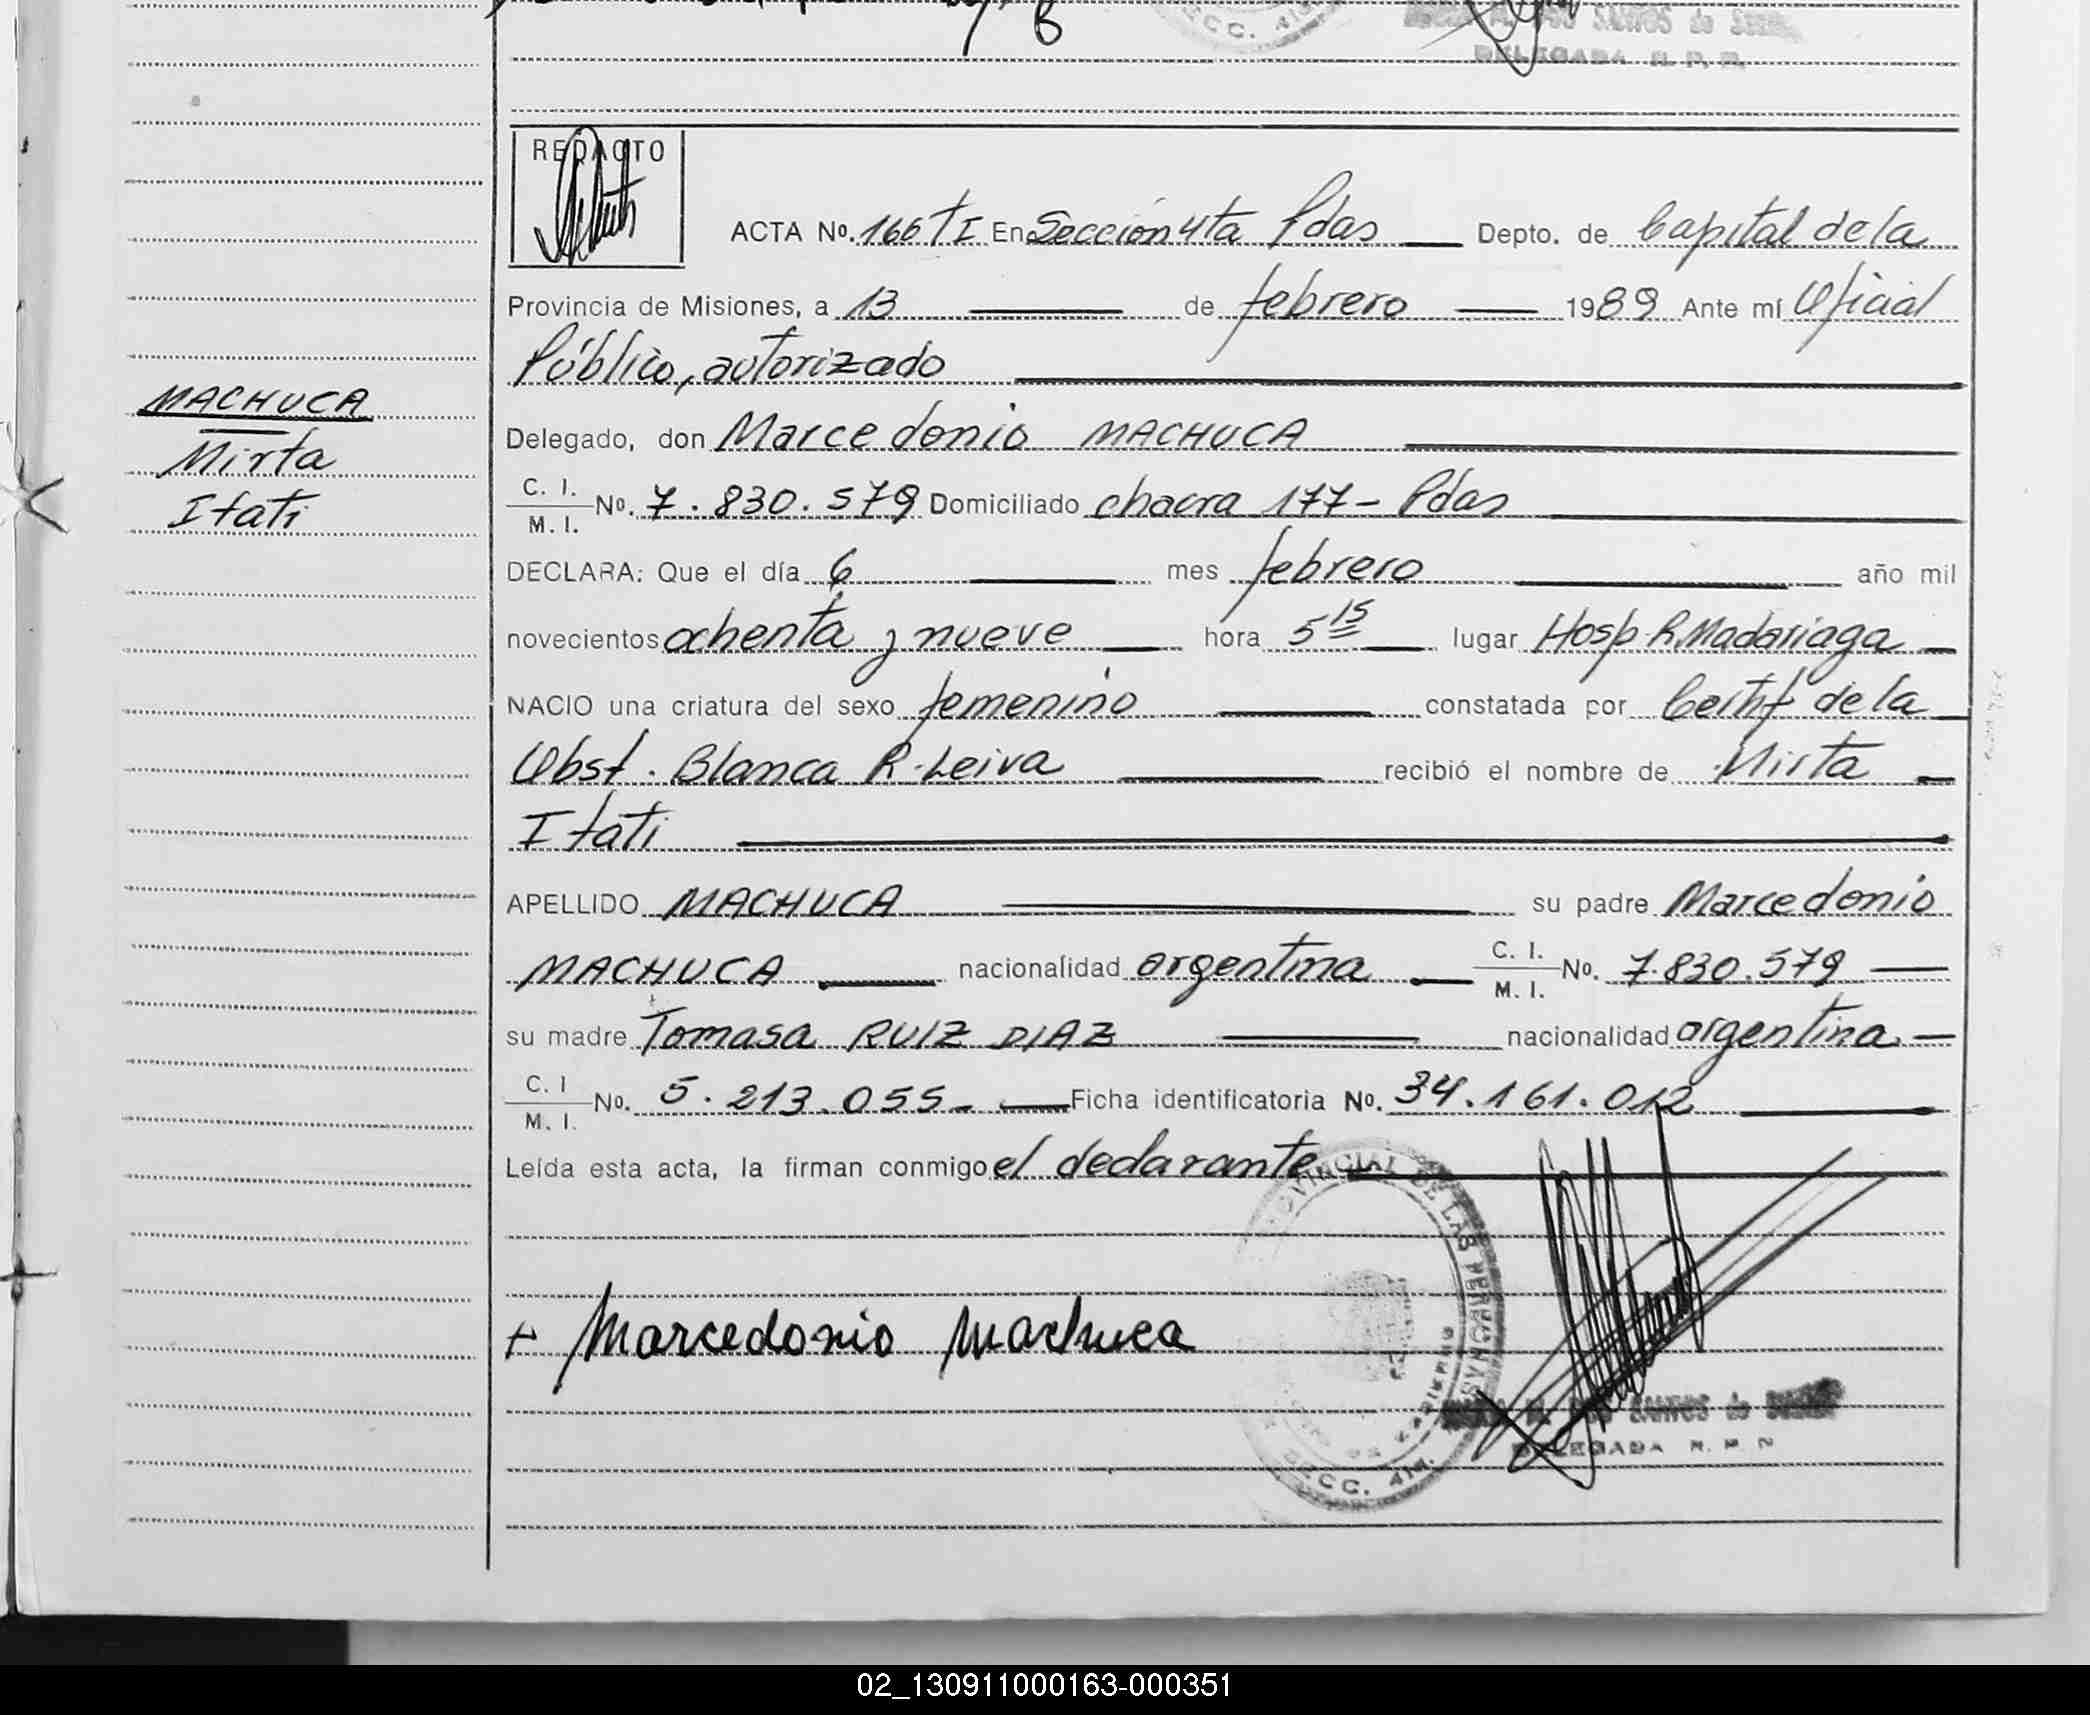 DELEGADA R. P. P.
REDACTO
ACTA No. 166 tI En Sección 4ta Pdas Depto. de Capital de la
Provincia de Misiones, a 13 de febrero 1989 Ante mí Oficial
Público, autorizado
MACHUCA
Mirta
Itati
Delegado, don Marcedonio MACHUCA
C. I.
M. I. No. 7.830.579 Domiciliado chacra 177 - Pdas
DECLARA: Que el día 6 mes febrero año mil
novecientos ochenta y nueve hora 5 15 lugar Hosp. R. Madariaga
NACIO una criatura del sexo femenino constatada por Certif de la
Obst. Blanca R. Leiva recibió el nombre de Mirta
Itati
APELLIDO MACHUCA su padre Marcedonio
MACHUCA nacionalidad argentina C. I.
M. I. No. 7.830.579
su madre Tomasa RUIZ DIAZ nacionalidad argentina
C. I
M. I. No. 5.213.055 - Ficha identificatoria No. 34.161.012
Leída esta acta, la firman conmigo el declarante
PROVINCIAL DE LAS PERSONAS
+ Marcedonio Machuca
SANTOS de
DELEGADA R. P.
SECC. 4ta.
02_130911000163-000351